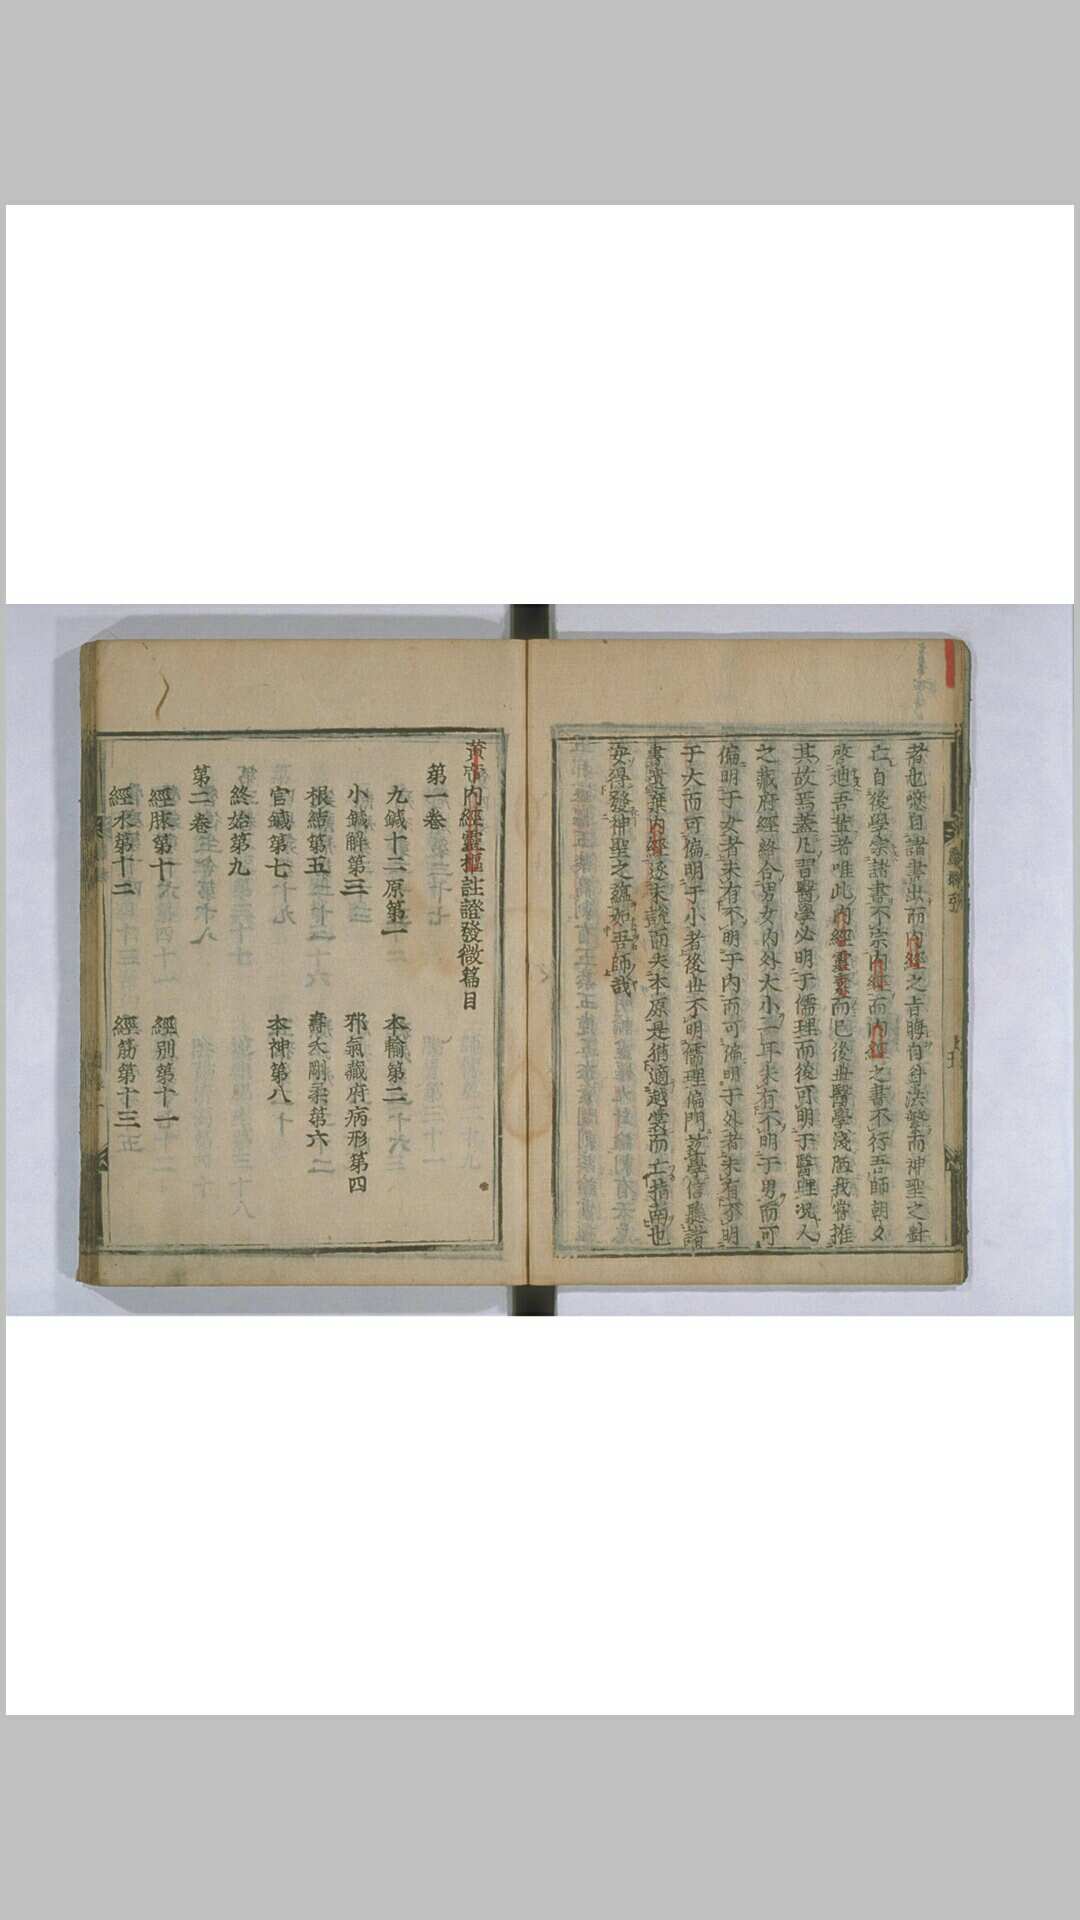 者也噫自諸書出而內經之旨晦自針法繁而神聖之針
亡自後學宗諸書不宗內經而內經之書不行吾師朝夕
啓迪吾輩者唯此內經靈素而已後世醫學淺陋我嘗推
其故焉蓋凡習醫學必明于儒理而後可明于醫理況人
之藏府經絡合男女內外大小一耳未有不明于男而可
偏明于女者未有不明于內而可偏明于外者未有不明
于大而可偏明于小者後世不明儒理偏門 學信聽諸
書遺棄內經逐末 而失本原是猶適越裳而亡指南也
安得發神聖之蘊如吾師哉
黃帝內經靈樞註證發微篇目
第一卷
九鍼十二原第一 本輸第二
小鍼解第三 邪氣藏府病形第四
根結第五 壽夭剛柔第六
官鍼第七 本神第八
終始第九
第二卷
經脈第十 經別第十一
經水第十二 經筋第十三